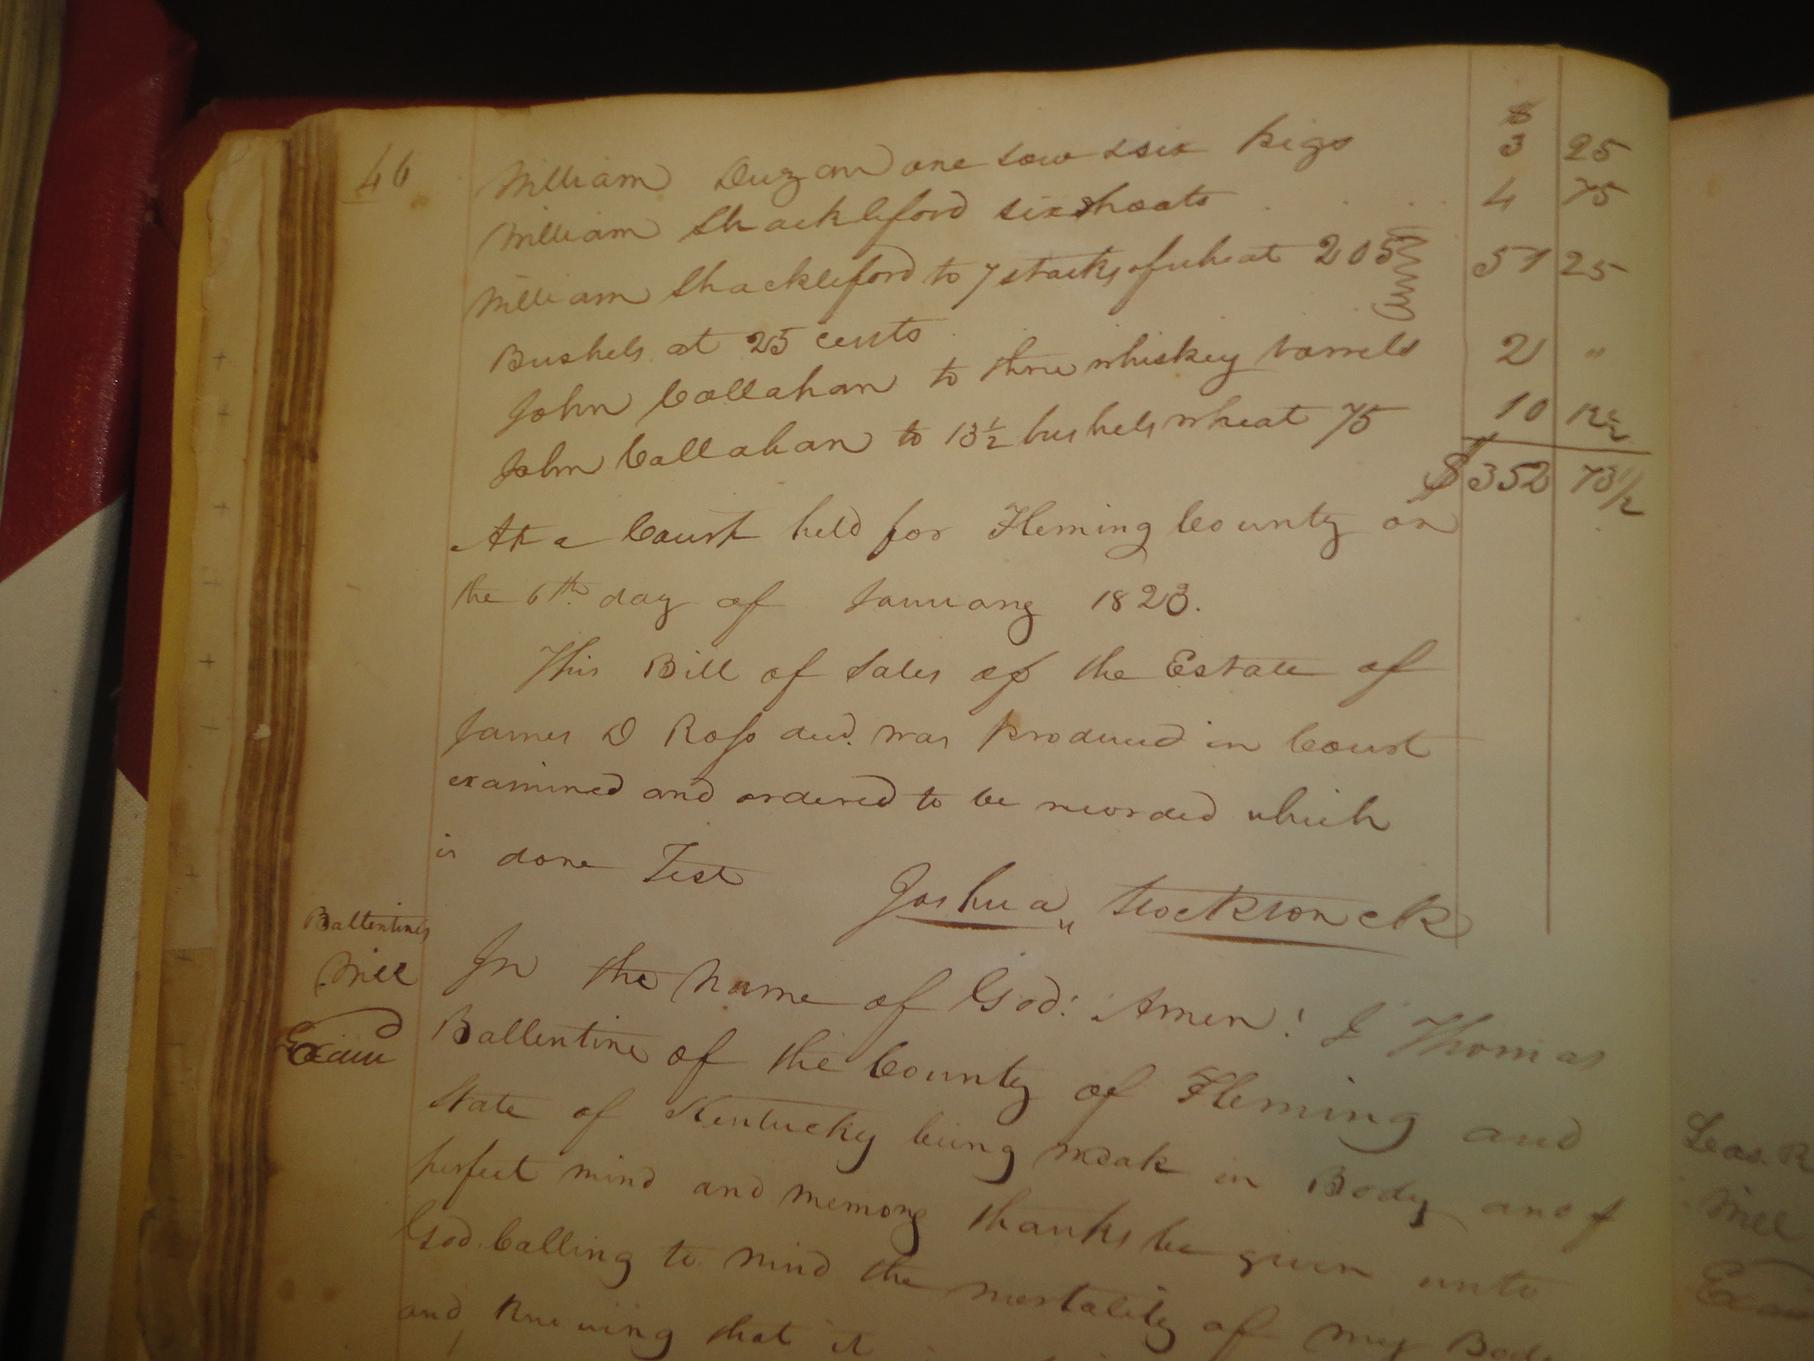 46
$
William Duzan one sow & six pigs 3 25
William Shackleford six shoats . . . 4 75
William Shackleford to 7 stacks of wheat 205 51 25
Bushels at 25 cents
John Callahan to three whiskey barrels 2 "
John Callahan to 13½ bushels wheat 75 10 12½
$352 73½
At a Court held for Fleming County on
the 6th day of January 1823.
This Bill of Sales of the Estate of
James D Ross decd. was produced in Court
examined and ordered to be recorded which
is done Test Joshua Stockton ck
Ballentines
Will
Exam
In the Name of God! Amen! I Thomas
Ballentine of the County of Fleming and
State of Kentucky being weak in Body and of
perfect mind and memory thanks be given unto
God. Calling to mind the mortality of my Body
and knowing that it
Leas. R
Will
Exam